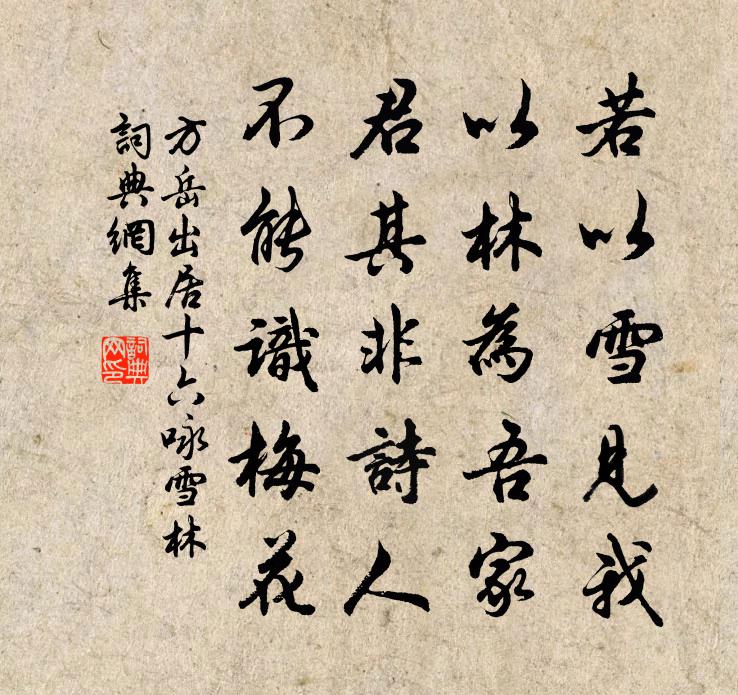 若以雪見我
以林為吾家
君其非詩人
不能識梅花
方岳出居十六咏雪林
詞典網集
詞典網印